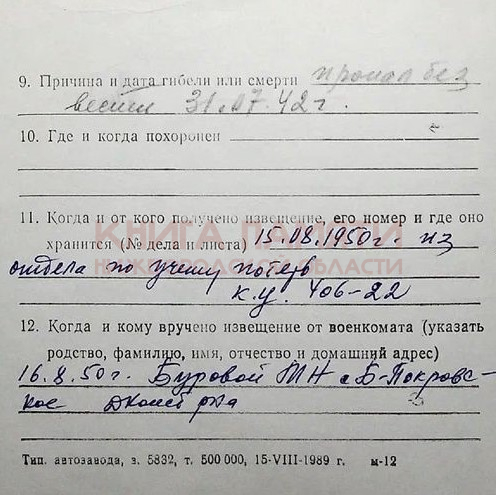 9. Причина и дата гибели или смерти пропал без
вести 31.07.42 г.
10. Где и когда похоронен
11. Когда и от кого получено извещение, его номер и где оно
хранится (№ дела и листа) 15.08.1950 г. из
отдела по учету потерь
к.у. 406-22
12. Когда и кому вручено извещение от военкомата (указать
родство, фамилию, имя, отчество и домашний адрес)
16.8.50 г. Буровой МН с Б-Покровс-
кое
Тип. автозавода, з. 5832, т. 500 000, 15-VIII-1989 г. м-12
КНИГА ПАМЯТИ
НИЖЕГОРОДСКОЙ ОБЛАСТИ